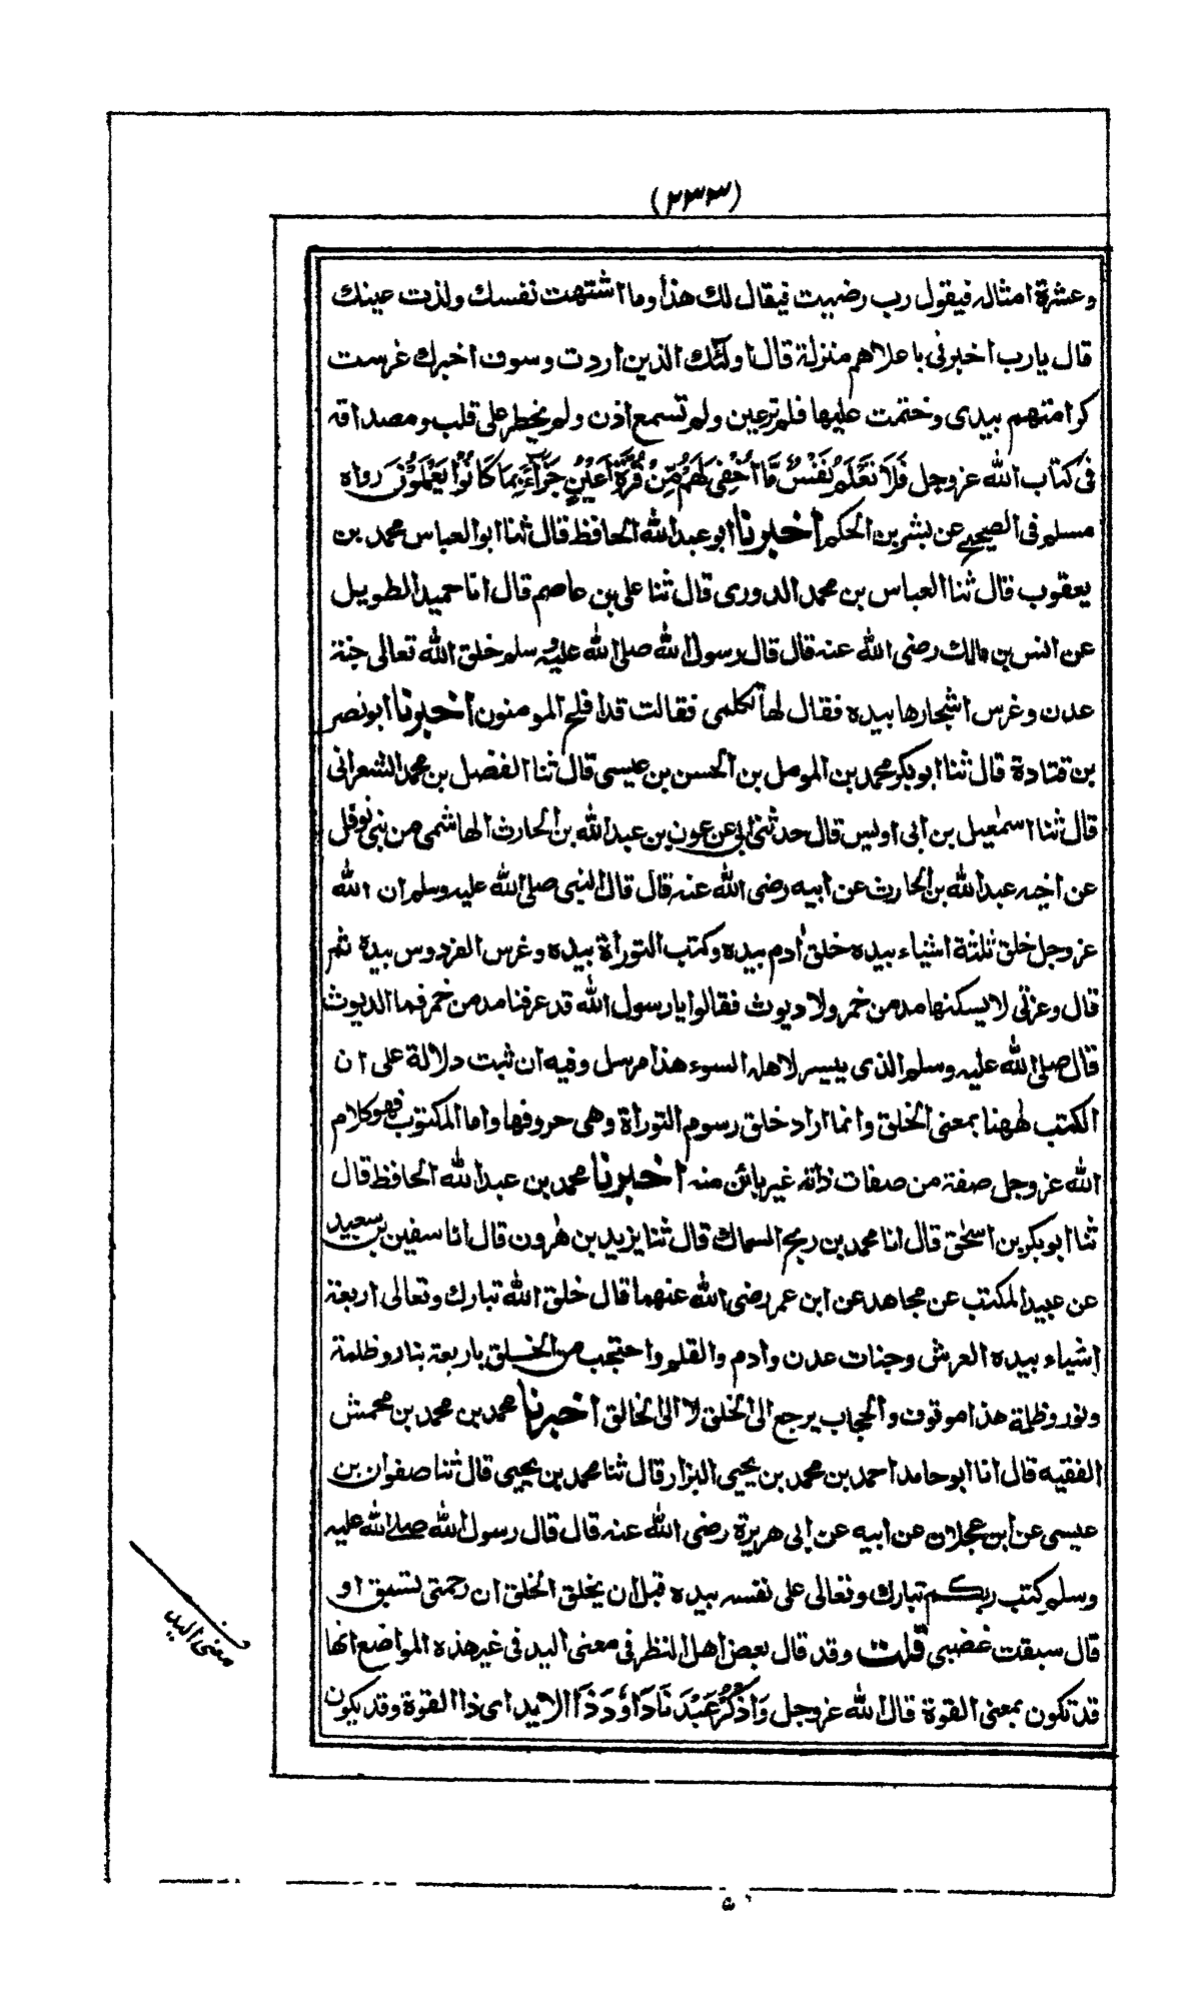 (٢٣٣)
وعشرة امثاله فيقول رب رضيت فيقال لك هذا وما اشتهت نفسك ولذت عينك
قال يا رب اخبرنى باعلاهم منزلة قال اولئك الذين اردت وسوف اخبرك غرست
كرامتهم بيدى وختمت عليها فلم ترعين ولم تسمع اذن ولم يخطر على قلب ومصداقه
فى كتاب الله عز وجل فَلَا تَعْلَمُ نَفْسٌ مَّا اُخْفِىَ لَهُمْ مِّنْ قُرَّةِ اَعْيُنٍ جَزَآءً بِمَا كَانُوْا يَعْمَلُوْنَ رواه
مسلم فى الصحيح عن بشر بن الحكم اخبرنا ابو عبد الله الحافظ قال ثنا ابو العباس محمد بن
يعقوب قال ثنا العباس بن محمد الدورى قال ثنا على بن عاصم قال انا حميد الطويل
عن انس بن مالك رضى الله عنه قال قال رسول الله صلى الله عليه وسلم خلق الله تعالى جنة
عدن وغرس اشجارها بيده فقال لها تكلمى فقالت قد افلح المومنون اخبرنا ابو نصر
بن قتادة قال ثنا ابو بكر محمد بن المومل بن الحسن بن عيسى قال ثنا الفضل بن محمد الشعرانى
قال ثنا اسمعيل بن ابى اويس قال حدثنى ابى عن عون بن عبد الله بن الحارث الهاشمى من بنى نوفل
عن اخيه عبد الله بن الحارث عن ابيه رضى الله عنه قال قال النبى صلى الله عليه وسلم ان الله
عز وجل خلق ثلثة اشياء بيده خلق ادم بيده وكتب التوراة بيده وغرس الفردوس بيده ثم
قال وعزتى لا يسكنها مدمن خمر ولا ديوث فقالوا يا رسول الله قد عرفنا مدمن خمر فما الديوث
قال صلى الله عليه وسلم الذى ييسر لاهله السوء هذا مرسل وفيه ان ثبت دلالة على ان
الكتب ههنا بمعنى الخلق وانما اراد خلق رسوم التوراة وهى حروفها واما المكتوب فهو كلام
الله عز وجل صفة من صفات ذاته غير بائن منه اخبرنا محمد بن عبد الله الحافظ قال
ثنا ابو بكر بن اسحق قال انا محمد بن ربح السماك قال ثنا يزيد بن هرون قال انا سفين بن سعيد
عن عبيد المكتب عن مجاهد عن ابن عمر رضى الله عنهما قال خلق الله تبارك وتعالى اربعة
اشياء بيده العرش وجنات عدن وادم والقلم واحتجب من الخلق باربعة بنار وظلمة
ونور وظلمة هذا موقوف والحجاب يرجع الى الخلق لا الى الخالق اخبرنا محمد بن محمد بن محمش
الفقيه قال انا ابو حامد احمد بن محمد بن يحيى البزار قال ثنا محمد بن يحيى قال ثنا صفوان بن
عيسى عن ابن عجلان عن ابيه عن ابى هريرة رضى الله عنه قال قال رسول الله صلى الله عليه
وسلم كتب ربكم تبارك وتعالى على نفسه بيده قبل ان يخلق الخلق ان رحمتى تسبق او
قال سبقت غضبى قلت وقد قال بعض اهل النظر فى معنى اليد فى غير هذه المواضع انها
قد تكون بمعنى القوة قال الله عز وجل وَاذْكُرْ عَبْدَنَا دَاوٗدَ ذَا الايد اى ذا القوة وقد يكون
معنى اليد